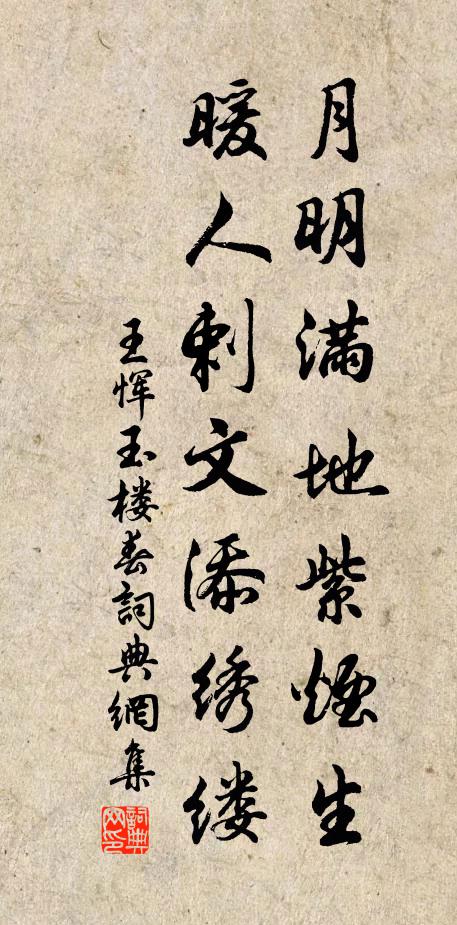 月明满地紫烟生
暖人刺文添绣缕
王恽玉楼春詞典網集
詞典网印